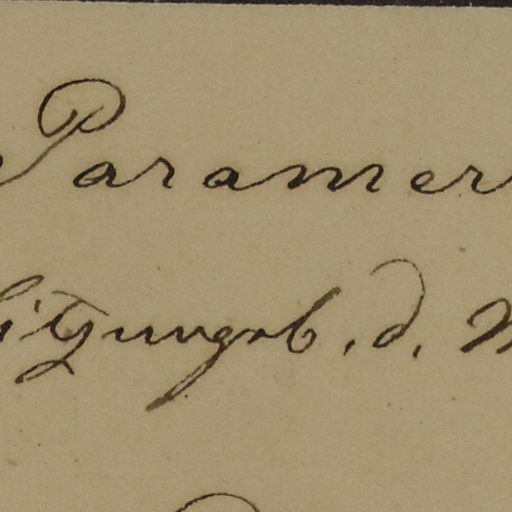 Paramer
Sitzungsb. d. W